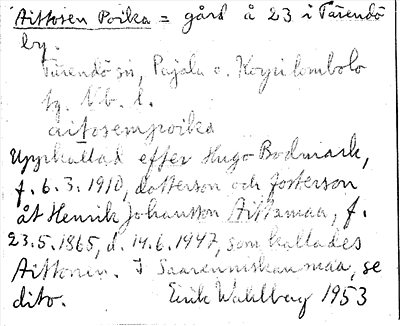 Aittosen Poika = gård å 23 i Tärendö
by.
Tärendö sn, Pajala o. Korpilombolo
tg. Nb. l.
aitosempoika
Uppkallad efter Hugo Bodmark,
f. 6.3.1910, dotterson och fosterson
åt Henrik Johansson Aittamaa, f.
23.5.1865, d. 14.6.1947, som kallades
Aittonin. I Saarenniskanmaa, se
dito. Erik Wahlberg 1953